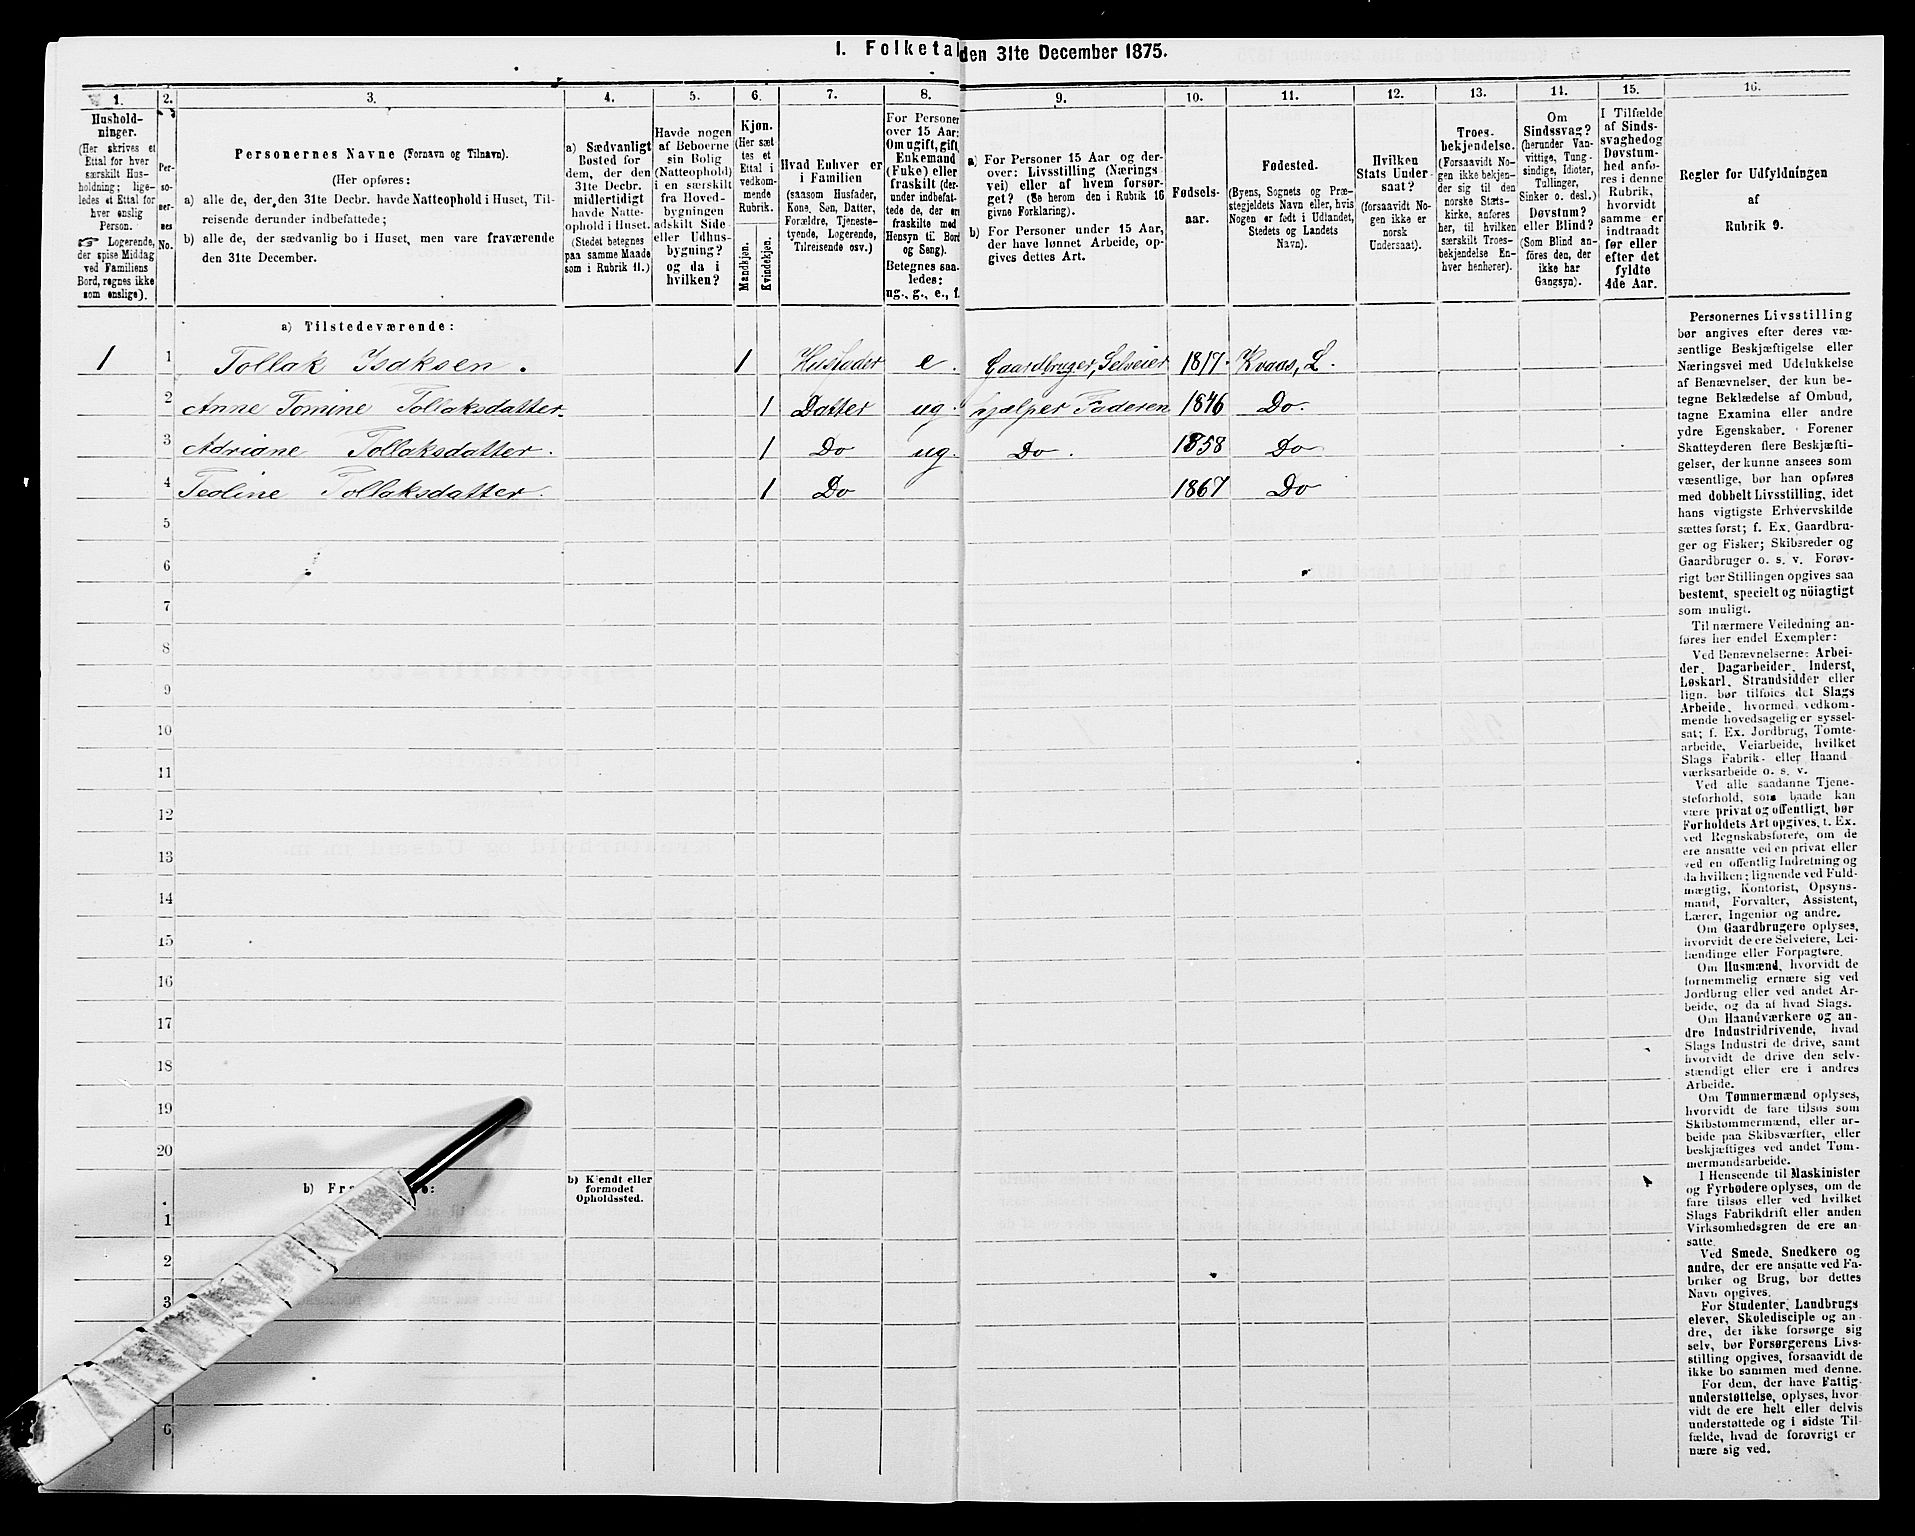 I. Folketal den 31te December 1875.
1.
Hushold-
ninger.
(Her skrives et
Ettal for hver
særskilt Hus-
holdning; lige-
ledes et Ettal for
hver enslig
Person.
☞ Logerende,
der spise Middag
ved Familiens
Bord, regnes ikke
som enslige).
2.
Per-
so-
ner-
nes
No.
3.
Personernes Navne (Fornavn og Tilnavn).
(Her opføres:
a) alle de, der den 31te Decbr. havde Natteophold i Huset, Til-
reisende derunder indbefattede;
b) alle de, der sædvanlig bo i Huset, men vare fraværende
den 31te December.
4.
a) Sædvanligt
Bosted for
dem, der den
31te Decbr.
midlertidigt
havde Natte-
ophold i Huset.
(Stedet betegnes
paa samme Maade
som i Rubrik 11.)
5.
Havde nogen
af Beboerne
sin Bolig
(Natteophold)
i en særskilt
fra Hoved-
bygningen
adskilt Side-
eller Udhus-
bygning?
og da i
hvilken?
6.
Kjøn.
(Her sæt-
tes et
Ettal i
vedkom-
mende
Rubrik.
Mandkjøn.
Kvindekjøn.
7.
Hvad Enhver er
i Familien
(saasom Husfader,
Kone, Søn, Datter,
Forældre, Tjeneste-
tyende, Logerende,
Tilreisende osv.)
8.
For Personer
over 15 Aar:
Om ugift, gift,
Enkemand
(Enke) eller
fraskilt (der-
under indbefat-
tede de, der ere
fraskilte med
Hensyn til Bord
og Seng).
Betegnes saa-
ledes:
ug., g., e., f.
9.
a) For Personer 15 Aar og der-
over: Livsstilling (Nærings-
vei) eller af hvem forsør-
get? (Se herom den i Rubrik 16
givne Forklaring).
b) For Personer under 15 Aar,
der have lønnet Arbeide, op-
gives dettes Art.
10.
Fødsels-
aar.
11.
Fødested.
(Byens, Sognets og Præ-
stegjeldets Navn eller, hvis
Nogen er født i Udlandet,
Stedets og Landets
Navn).
12.
Hvilken
Stats Under-
saat?
(forsaavidt No-
gen ikke er
norsk
Undersaat).
13.
Troes-
bekjendelse.
(Forsaavidt No-
gen ikke bekjen-
der sig til den
norske Stats-
kirke, anføres
her, til hvilken
særskilt Troes-
bekjendelse En-
hver henhører).
14.
Om
Sindssvag?
(herunder Van-
vittige, Tung-
sindige, Idioter,
Tullinger,
Sinker o. desl.)
Døvstum?
eller Blind?
(Som Blind an-
føres den, der
ikke har
Gangsyn).
15.
I Tilfælde
af Sinds-
svaghed og
Døvstum-
hed anfø-
res i denne
Rubrik,
hvorvidt
samme er
indtraadt
før eller
efter det
fyldte
4de Aar.
16.
Regler for Udfyldningen
af
Rubrik 9.
a) Tilstedeværende:
1 1 Tollak Isaksen. 1 Husfader e. Gaardbruger, Selveier 1817. Kvaas, L.
2 Anne Tomine Tollaksdatter. 1 Datter ug. hjælper Faderen 1846 Do.
3 Adriane Tollaksdatter. 1 Do ug. Do. 1858 Do
4 Teoline Tollaksdatter. 1 Do 1867 Do
5
6
7
8
9
10
11
12
13
14
15
16
17
18
19
20
b) Fra
b) Kjendt eller
formodet
Opholdssted.
1
2
3
6
Personernes Livsstilling
bør angives efter deres væ-
sentlige Beskjæftigelse eller
Næringsvei med Udelukkelse
af Benævnelser, der kun be-
tegne Beklædelse af Ombud,
tagne Examina eller andre
ydre Egenskaber. Forener
Skatteyderen flere Beskjæfti-
gelser, der kunne ansees som
væsentlige, bør han opføres
med dobbelt Livsstilling, idet
hans vigtigste Erhvervskilde
sættes først; f. Ex. Gaardbru-
ger og Fisker; Skibsreder og
Gaardbruger o. s. v. Forøv-
rigt bør Stillingen opgives saa
bestemt, specielt og nøiagtigt
som muligt.
Til nærmere Veiledning an-
føres her endel Exempler:
Ved Benævnelserne: Arbei-
der, Dagarbeider, Inderst,
Løskarl, Strandsidder eller
lign. bør tilføies det Slags
Arbeide, hvormed vedkom-
mende hovedsagelig er syssel-
sat; f. Ex. Jordbrug, Tomte-
arbeide, Veiarbeide, hvilket
Slags Fabrik- eller Haand-
værksarbeide o. s. v.
Ved alle saadanne Tjene-
steforhold, som baade kan
være privat og offentligt, bør
Forholdets Art opgives, f. Ex.
ved Regnskabsførere, om de
ere ansatte ved en privat eller
ved en offentlig Indretning og
da hvilken; lignende ved Fuld-
mægtig, Kontorist, Opsyns-
mand, Forvalter, Assistent,
Lærer, Ingeniør og andre.
Om Gaardbrugere oplyses,
hvorvidt de ere Selveiere, Lei-
lændinge eller Forpagtere.
Om Husmænd, hvorvidt de
fornemmelig ernære sig ved
Jordbrug eller ved andet Ar-
beide, og da af hvad Slags.
Om Haandværkere og an-
dre Industridrivende, hvad
Slags Industri de drive, samt
hvorvidt de drive den selv-
stændigt eller ere i andres
Arbeide.
Om Tømmermænd oplyses,
hvorvidt de fare tilsøs som
Skibstømmermænd, eller ar-
beide paa Skibsværfter, eller
beskjæftiges ved andet Tøm-
mermandsarbeide.
I Henseende til Maskinister
og Fyrbødere oplyses, om de
fare tilsøs eller ved hvilket
Slags Fabrikdrift eller anden
Virksomhedsgren de ere an-
satte.
Ved Smede, Snedkere og
andre, der ere ansatte ved Fa-
briker og Brug, bør dettes
Navn opgives.
For Studenter, Landbrugs-
elever, Skoledisciple og an-
dre, der ikke forsørge sig
selv, bør Forsørgerens Livs-
stilling opgives, forsaavidt de
ikke bo sammen med denne.
For dem, der have Fattig-
understøttelse, oplyses, hvor-
vidt de ere helt eller delvis
understøttede og i sidste Til-
fælde, hvad de forøvrigt er-
nære sig ved.